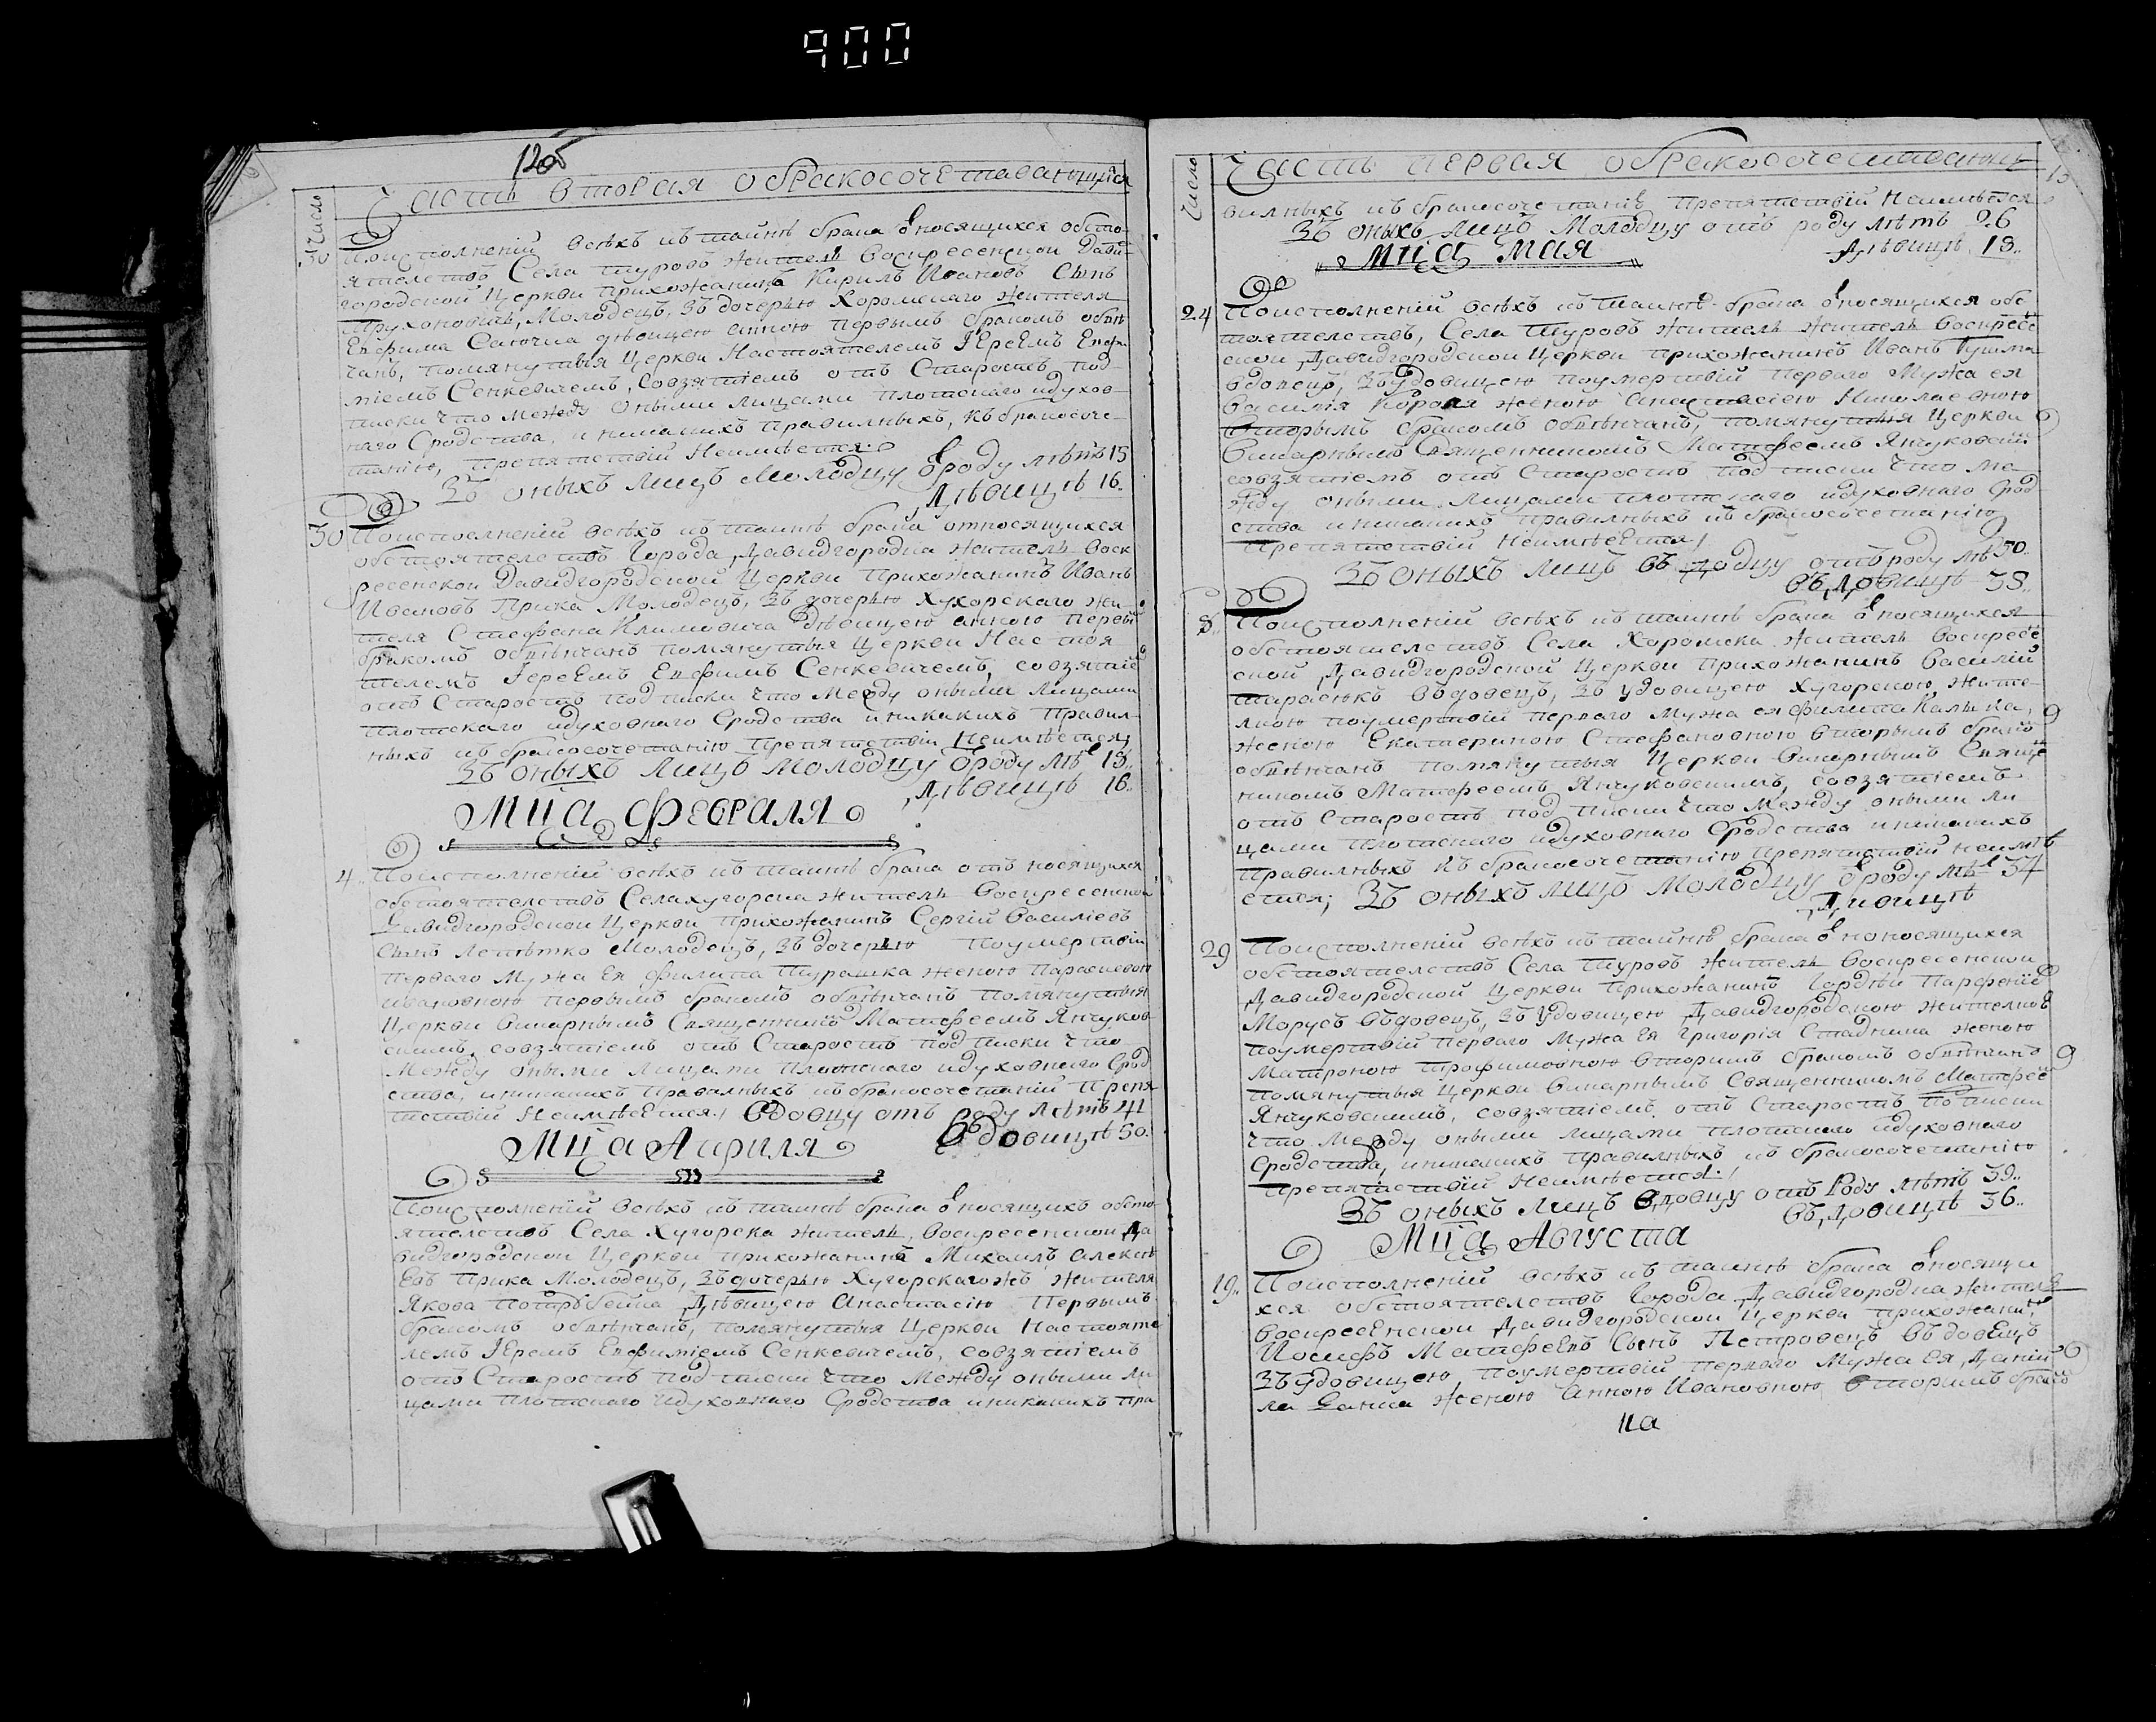 900
12об
Часть вторая обракосочетавающихся
Число
30 Поисполненій всѣхъ къ таинѣ брака относящихся обсто-
ятелствъ Села Туровъ житель Воскресенской Давид-
городской Церкви прихожанинъ Кирилъ Ивановъ Сынъ
Молодецъ, зъ дочерью Хоромскаго жителя
Евфима дѣвицею Анною первымъ бракомъ обвѣн
чанъ, помянутыя Церкви Настоятелемъ Іереемъ Евфи-
міемъ Сенкевичемъ, совзятіемъ отъ Старостъ под-
писки что между оными лицами плотскаго идухов-
наго Сродства, иникакихъ правилныхъ, къ бракосоче-
танію, препятствій Неимѣется.
Зъ оныхъ Лицъ Молодцу отроду лѣтъ 15
Дѣвицѣ 16.
30 Поисполненій всѣхъ къ таинѣ брака относящихся
обстоятелствъ Города Давидгородка житель Воск
ресенской Давидгородской Церкви Прихожанинъ Иванъ
Ивановъ Прика Молодецъ, Зъ дочерью Хухорскаго жи-
теля Стефана Климовича Дѣвицею Анною первы
бракомъ обвѣнчанъ помянутыя Церкви Настоя
телемъ Іереемъ Евфимъ Сенкевичемъ, совзятіе
отъ Старостъ подписки что Между оными Лицами
плотскаго идуховнаго Сродства иникакихъ Правил-
ныхъ къ бракосочетанію препятствій Неимѣется,
Зъ оныхъ Лицъ Молодцу отроду лѣ 13.
Дѣвицѣ 16.
Мца Февраля
4. Поисполненій всѣхъ къ таинѣ брака отъ носящихся
обстоятелствъ Села Хугорска житель Воскресенской
Давидгородской Церкви прихожанинъ Сергій Василіевъ
Сынъ Лепѣтко Молодецъ, зъ дочерью Поумертвій
перваго Мужа Ея Филипа Турашка женою Парасковею
Ивановною первымъ бракомъ обвѣнчанъ помянутыя
Церкви Викарнымъ Священникѡ Матфеемъ Янчуков
скимъ, совзятіемъ отъ Старостъ подписки что
Между оными лицами Плотскаго идуховнаго Срод
ства, иникакихъ Правилныхъ къ бракосочетаній Препя
тствій Неимѣется, Вдовцу отъ роду лѣтъ 41
Въдовицѣ 50.
Мца Априля
Поисполненій всѣхъ къ таинѣ брака относящихъ обсто
ятелствъ Села Хугорска житель, Воскресенской Да
видгородской Церкви прихожанинъ Михаилъ Алексѣ
Евъ Прика Молодецъ, Зъ дочерью Хугорскагожъ жителя
Якова Дѣвицею Анастасію Первымъ
бракомъ обвѣнчанъ, помянутыя Церкви Настояте
лемъ Іереемъ Евфиміемъ Сенкевичемъ, совзятіемъ
отъ Старостъ подписки что Между оными Ли
цами плотскаго идуховнаго Сродства иникакихъ пра
Часть первая обракосочетавающи
Число
вилныхъ къ бракосочетаніѣ препятствій Неимѣется
Зъ оныхъ Лицъ Молодцу отъ роду лѣтъ 26
Дѣвицѣ 18.
Мца Мая
24 Поисполненій всѣхъ къ таинѣ брака относящихся обс
тоятелствъ, Села Туровъ житель житель Воскресе
ской Давидгородской Церкви прихожанинъ Иванъ Кушма
вдовецъ, зъ Удовицею поумертвій Перваго Мужа ея
Василія Короля женою Анастасіею Николаевною
Вторымъ бракомъ обвѣнчанъ, помянутыя Церкви
Викарнымъ Священникомъ Матфеемъ Янчуковскій
совзятіемъ отъ Старостъ подписки что ме
жду оными Лицами плотскаго идуховнаго Срод
ства иникакихъ правилныхъ къ бракосочетанію
Препятствій Неимѣется,
Зъ оныхъ лицъ въдовцу отъ роду лѣ 50.
въдовицѣ 38.
8. Поисполненій всѣхъ къ таинѣ брака относящихся
обстоятелствъ Села Хоромска житель Воскресе
ской Давидгородской Церкви прихожанинъ Василій
Тарасюкъ въдовецъ, зъ удовицею Хугорскою жите-
лкою поумертвій перваго Мужа ея Филипа Калыка,
женою Екатериною Стефановною вторымъ брако
обвѣнчанъ помянутыя Церкви Викарнымъ Свяще
никомъ Матфеемъ Янчуковскимъ, совзятіемъ
отъ Старостъ подписки что Между оными ли
цами плотскаго идуховнаго Сродства иникакихъ
правилныхъ къ бракосочетанію препятствій неимѣ
ется; Зъ оныхъ лицъ Молодцу отроду лѣ 34
Дивицѣ
29 Поисполненій всѣхъ къ таинѣ брака отноносящихся
обстоятелствъ Села Туровъ житель Воскресенской
Давидгородской Церкви прихожанинъ Гордѣй Парфеніе
Морусъ въдовецъ, зъ Удовицею Давидгородскою жителко
поумертвій перваго Мужа Ея Григорія Стаднича женою
Матроною Трофимовною вторимъ бракомъ обвѣнчанъ
помянутыя Церкви Викарнымъ Священникомъ Матфее
Янчуковскимъ, совзятіемъ отъ Старостъ подписки
что Между оными лицами плотского идуховнаго
Сродства, иникакихъ правилныхъ къ бракосочетанію
препятствій Неимѣется,
Зъ оныхъ лицъ вдовцу отъ Роду лѣтъ 39.
въдовицѣ 36.
Мца Августа
19. Поисполненій всѣхъ къ таинѣ брака относящи
хся обстоятелствъ Города Давидгородка жител
Воскресенской Давидгородской Церкви прихожани
Иосифъ Матфеевъ Сынъ Петровецъ въдовецъ
Зъ Удовицею, поумертвій перваго Мужа Ея, Даній
ла женою Анною Ивановною вторимъ брако